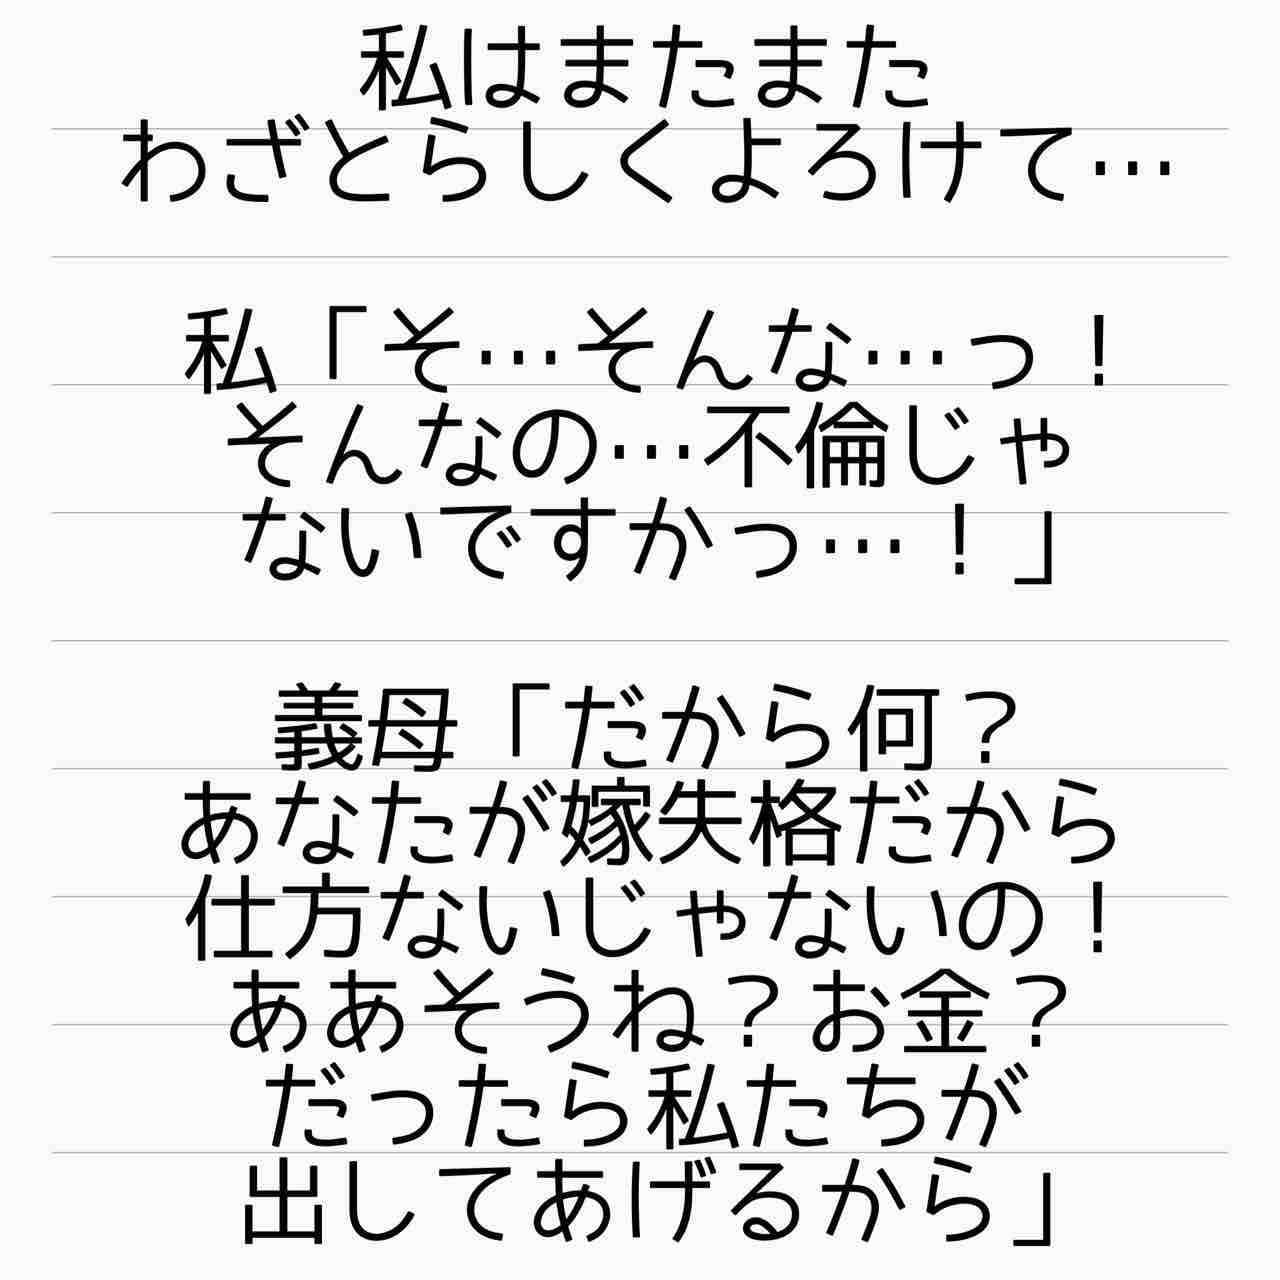 私はまたまた
わざとらしくよろけて…
私「そ…そんな…っ！
そんなの…不倫じゃ
ないですかっ…！」
義母「だから何？
あなたが嫁失格だから
仕方ないじゃないの！
ああそうね？お金？
だったら私たちが
出してあげるから」